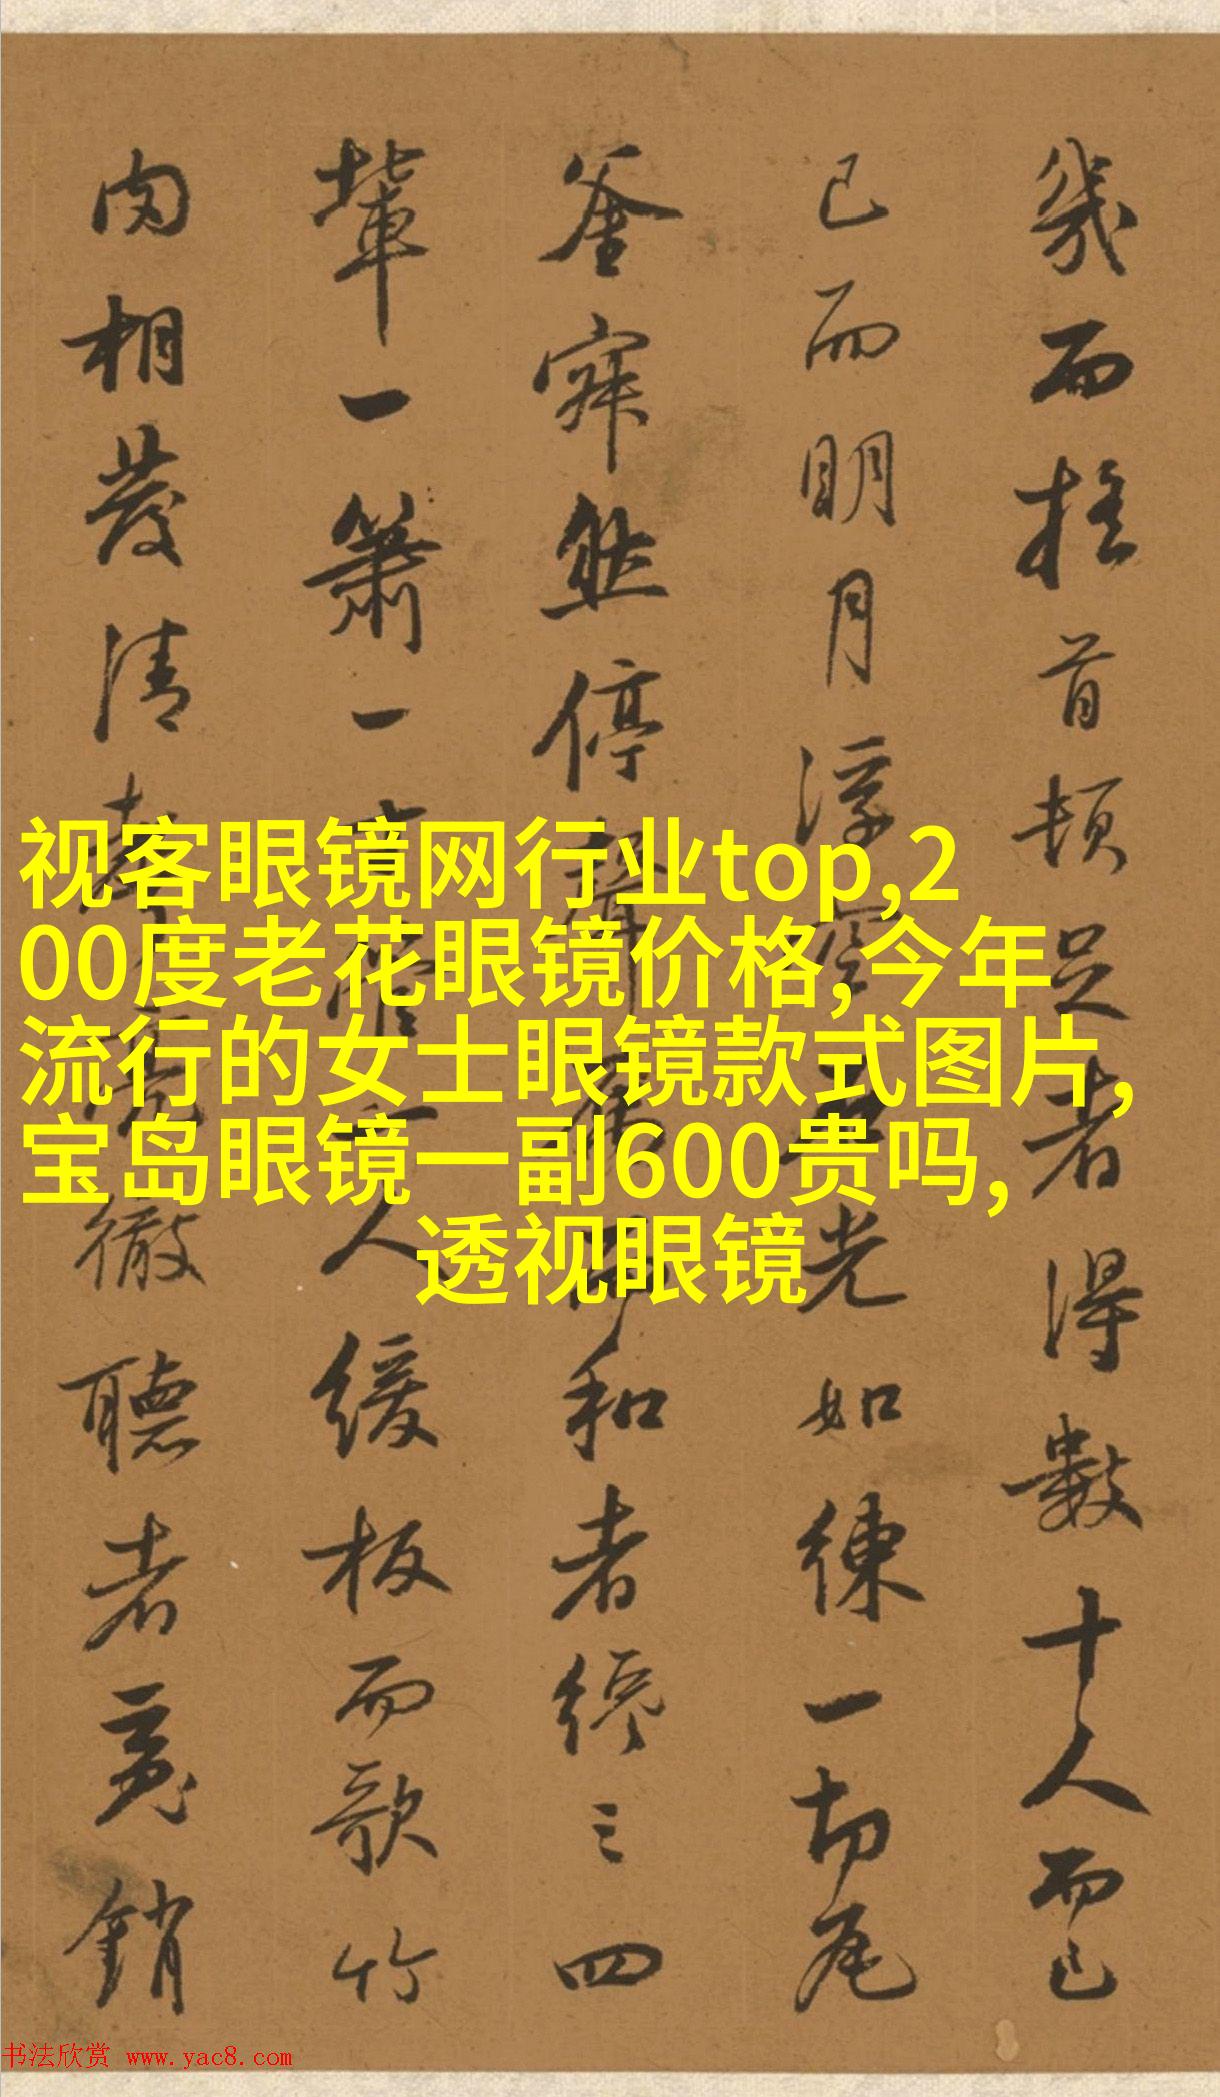 幾而摇首頓足者得數十人而已
已而明月浮空石光如練一切瓦
釜寂然停聲属而和者纔三四
輩一簫一寸管一人緩板而歌竹
肉相發清聲亮徹聽者魂銷
视客眼镜网行业top,2
00度老花眼镜价格,今年
流行的女士眼镜款式图片,
宝岛眼镜一副600贵吗,
透视眼镜
书法欣赏 www.yac8.com